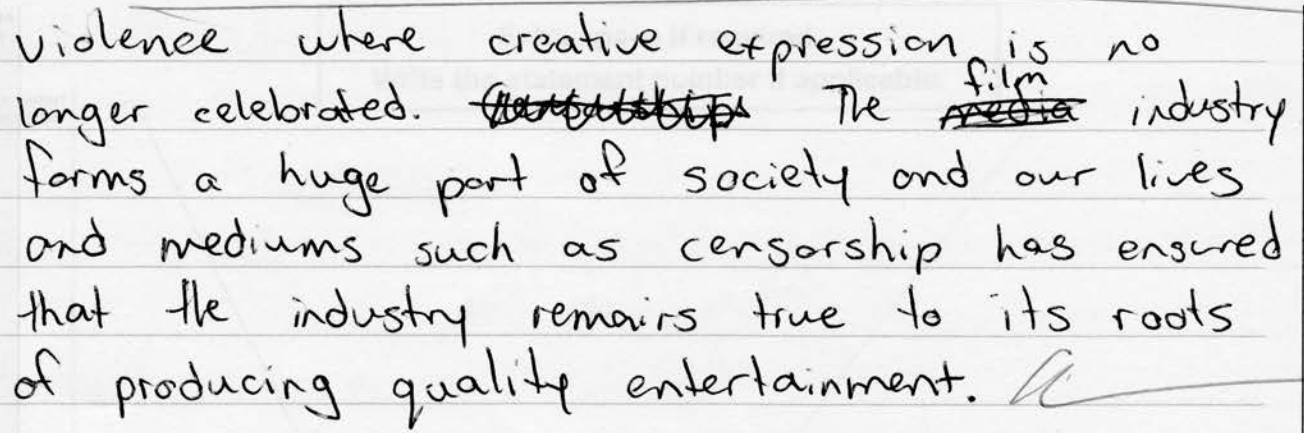 violence where creative expression is no
longer celebrated. The film industry
forms a huge part of society and our lives
and mediums such as censorship has ensured
that the industry remains true to its roots
of producing quality entertainment.